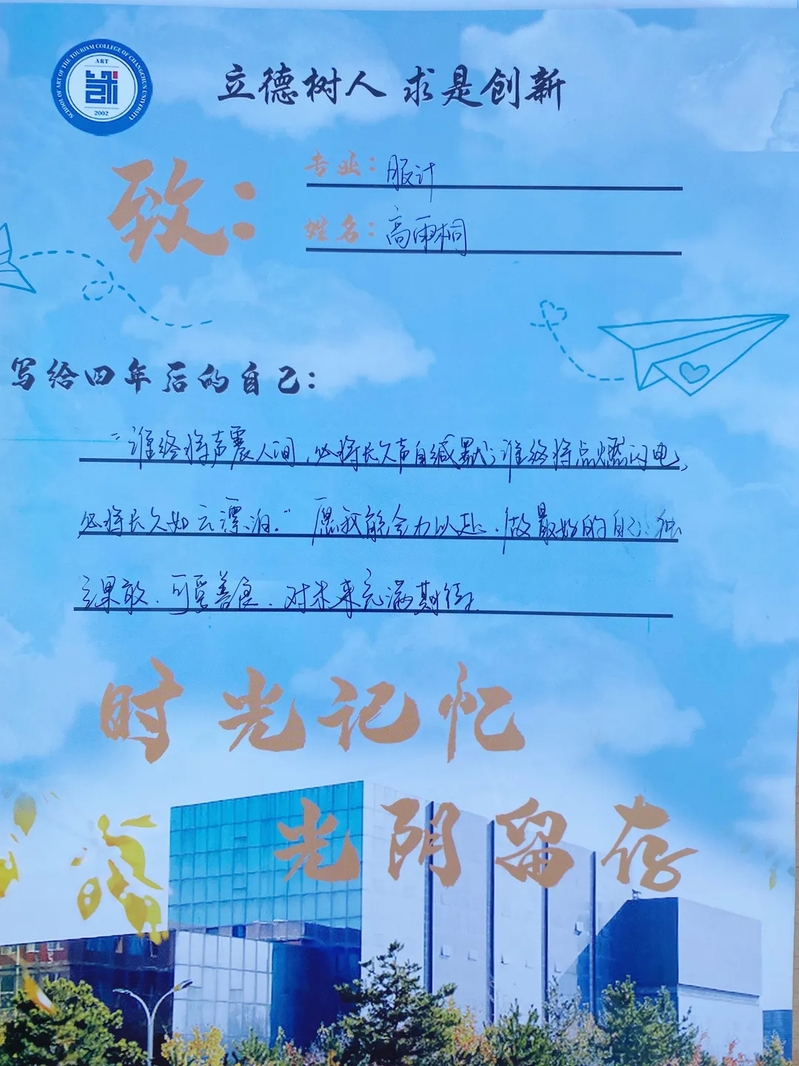 SCHOOL OF ART OF THE TOURISM COLLEGE OF CHANGCHUN UNIVERSITY
ART
2002
立德树人 求是创新
致：
专业：服计
姓名：高雨桐
写给四年后的自己：
“谁终将声震人间，必将长久声自缄默；谁终将点燃闪电，
必将长久如云漂泊。”愿我能全力以赴、做最好的自己：独
立果敢、可爱善良、对未来充满期待。
时光记忆
光阴留存